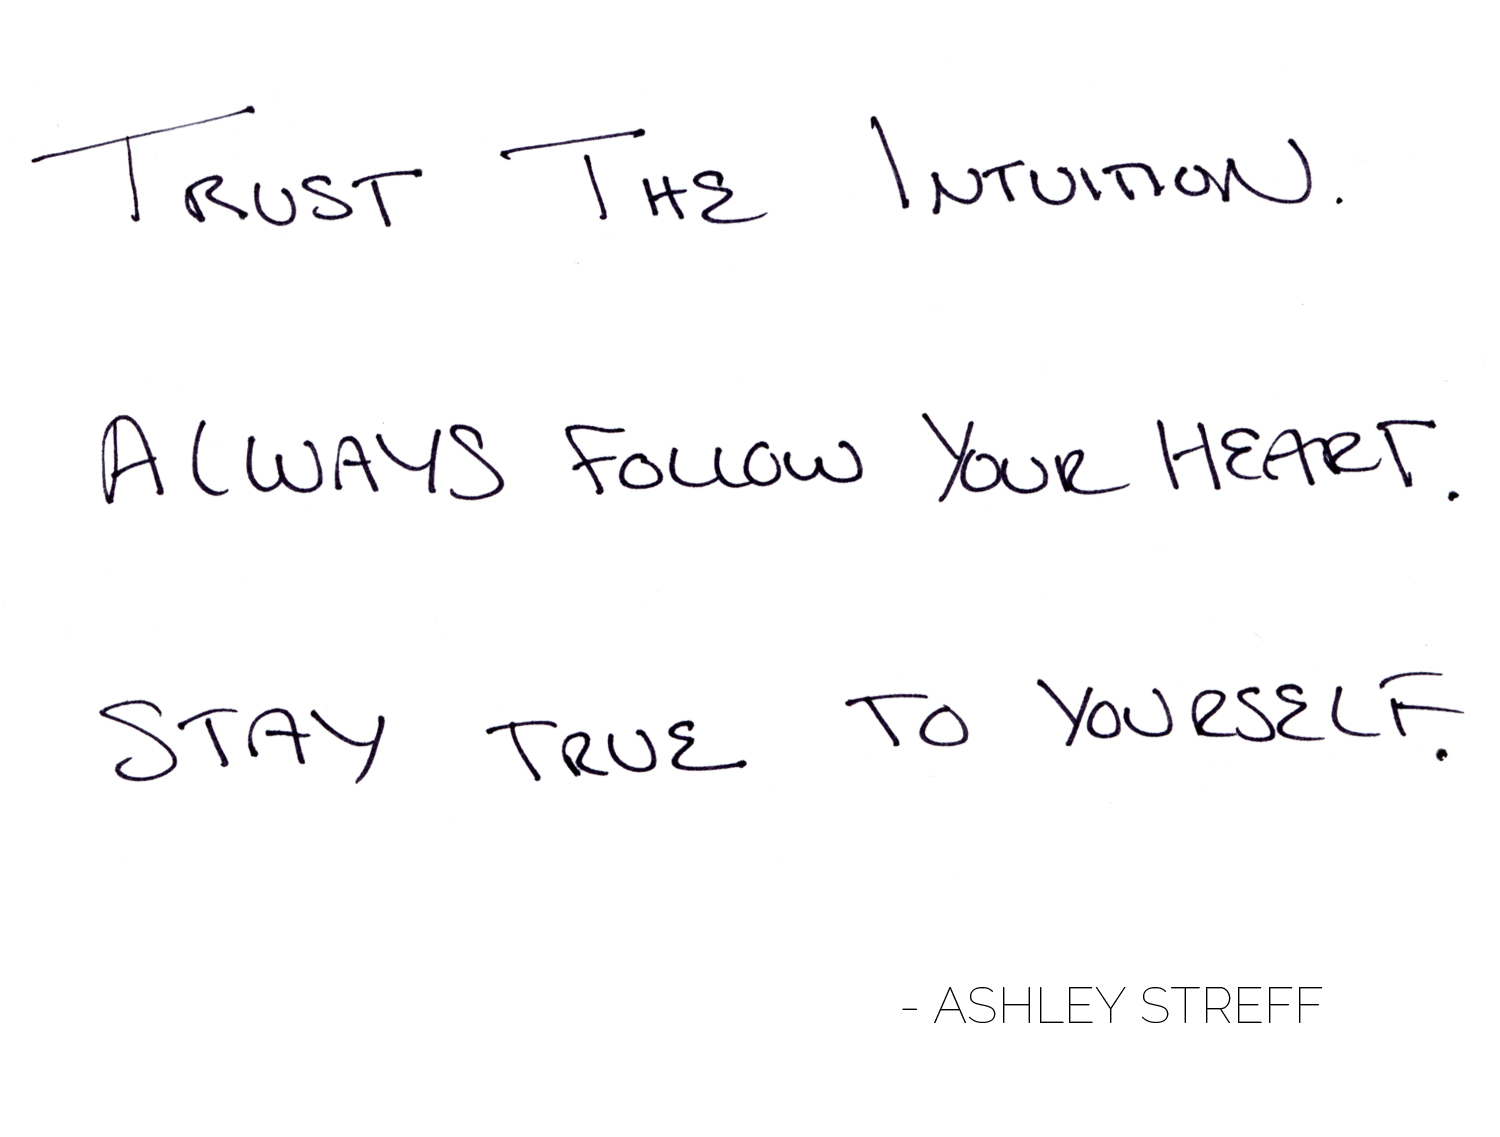 TRUST THE INTUITION.
ALWAYS FOLLOW YOUR HEART.
STAY TRUE TO YOURSELF.
- ASHLEY STREFF